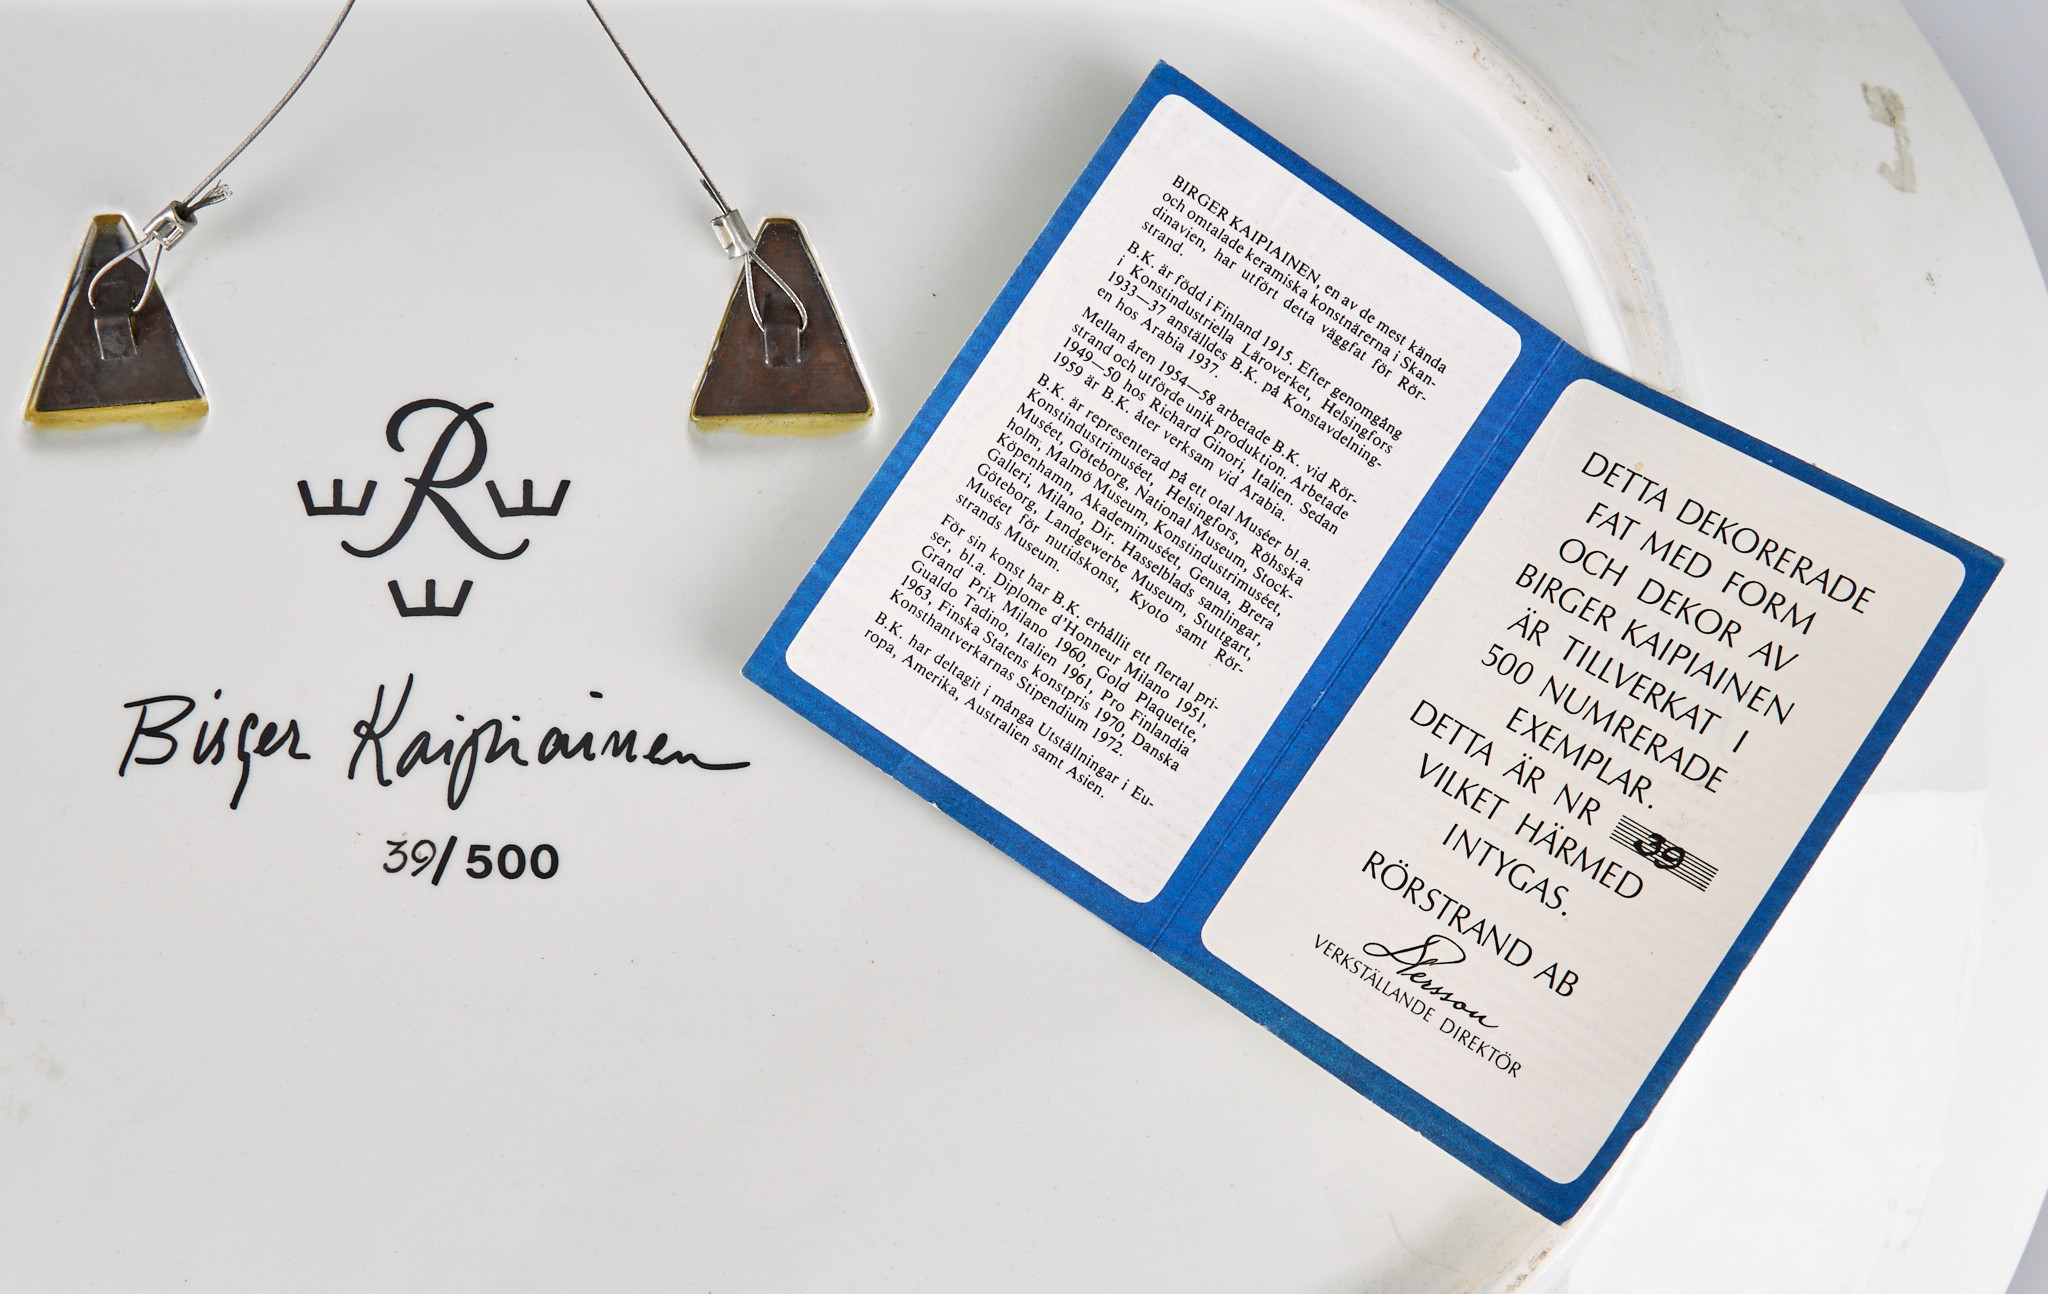 R
Birger Kaipiainen
39/500
BIRGER KAIPIAINEN, en av de mest kända
och omtalade keramiska konstnärerna i Skan-
dinavien, har utfört detta väggfat för Rör-
strand.
B.K. är född i Finland 1915. Efter genomgång
i Konstindustriella Läroverket, Helsingfors
1933—37 anställdes B.K. på Konstavdelning-
en hos Arabia 1937.
Mellan åren 1954—58 arbetade B.K. vid Rör-
strand och utförde unik produktion. Arbetade
1949—50 hos Richard Ginori, Italien. Sedan
1959 är B.K. åter verksam vid Arabia.
B.K. är representerad på ett otal Muséer bl.a.
Konstindustrimuséet, Helsingfors, Röhsska
Muséet, Göteborg, National Museum, Stock-
holm, Malmö Museum, Konstindustrimuséet,
Köpenhamn, Akademimuséet, Genua, Brera
Galleri, Milano, Dir. Hasselblads samlingar,
Göteborg, Landgewerbe Museum, Stuttgart,
Muséet för nutidskonst, Kyoto samt Rör-
strands Museum.
För sin konst har B.K. erhållit ett flertal pri-
ser, bl.a. Diplome d'Honneur Milano 1951,
Grand Prix Milano 1960, Gold Plaquette,
Gualdo Tadino, Italien 1961, Pro Finlandia
1963, Finska Statens konstpris 1970, Danska
Konsthantverkarnas Stipendium 1972.
B.K. har deltagit i många Utställningar i Eu-
ropa, Amerika, Australien samt Asien.
DETTA DEKORERADE
FAT MED FORM
OCH DEKOR AV
BIRGER KAIPIAINEN
ÄR TILLVERKAT I
500 NUMRERADE
EXEMPLAR.
DETTA ÄR NR 39
VILKET HÄRMED
INTYGAS.
RÖRSTRAND AB
Persson
VERKSTÄLLANDE DIREKTÖR